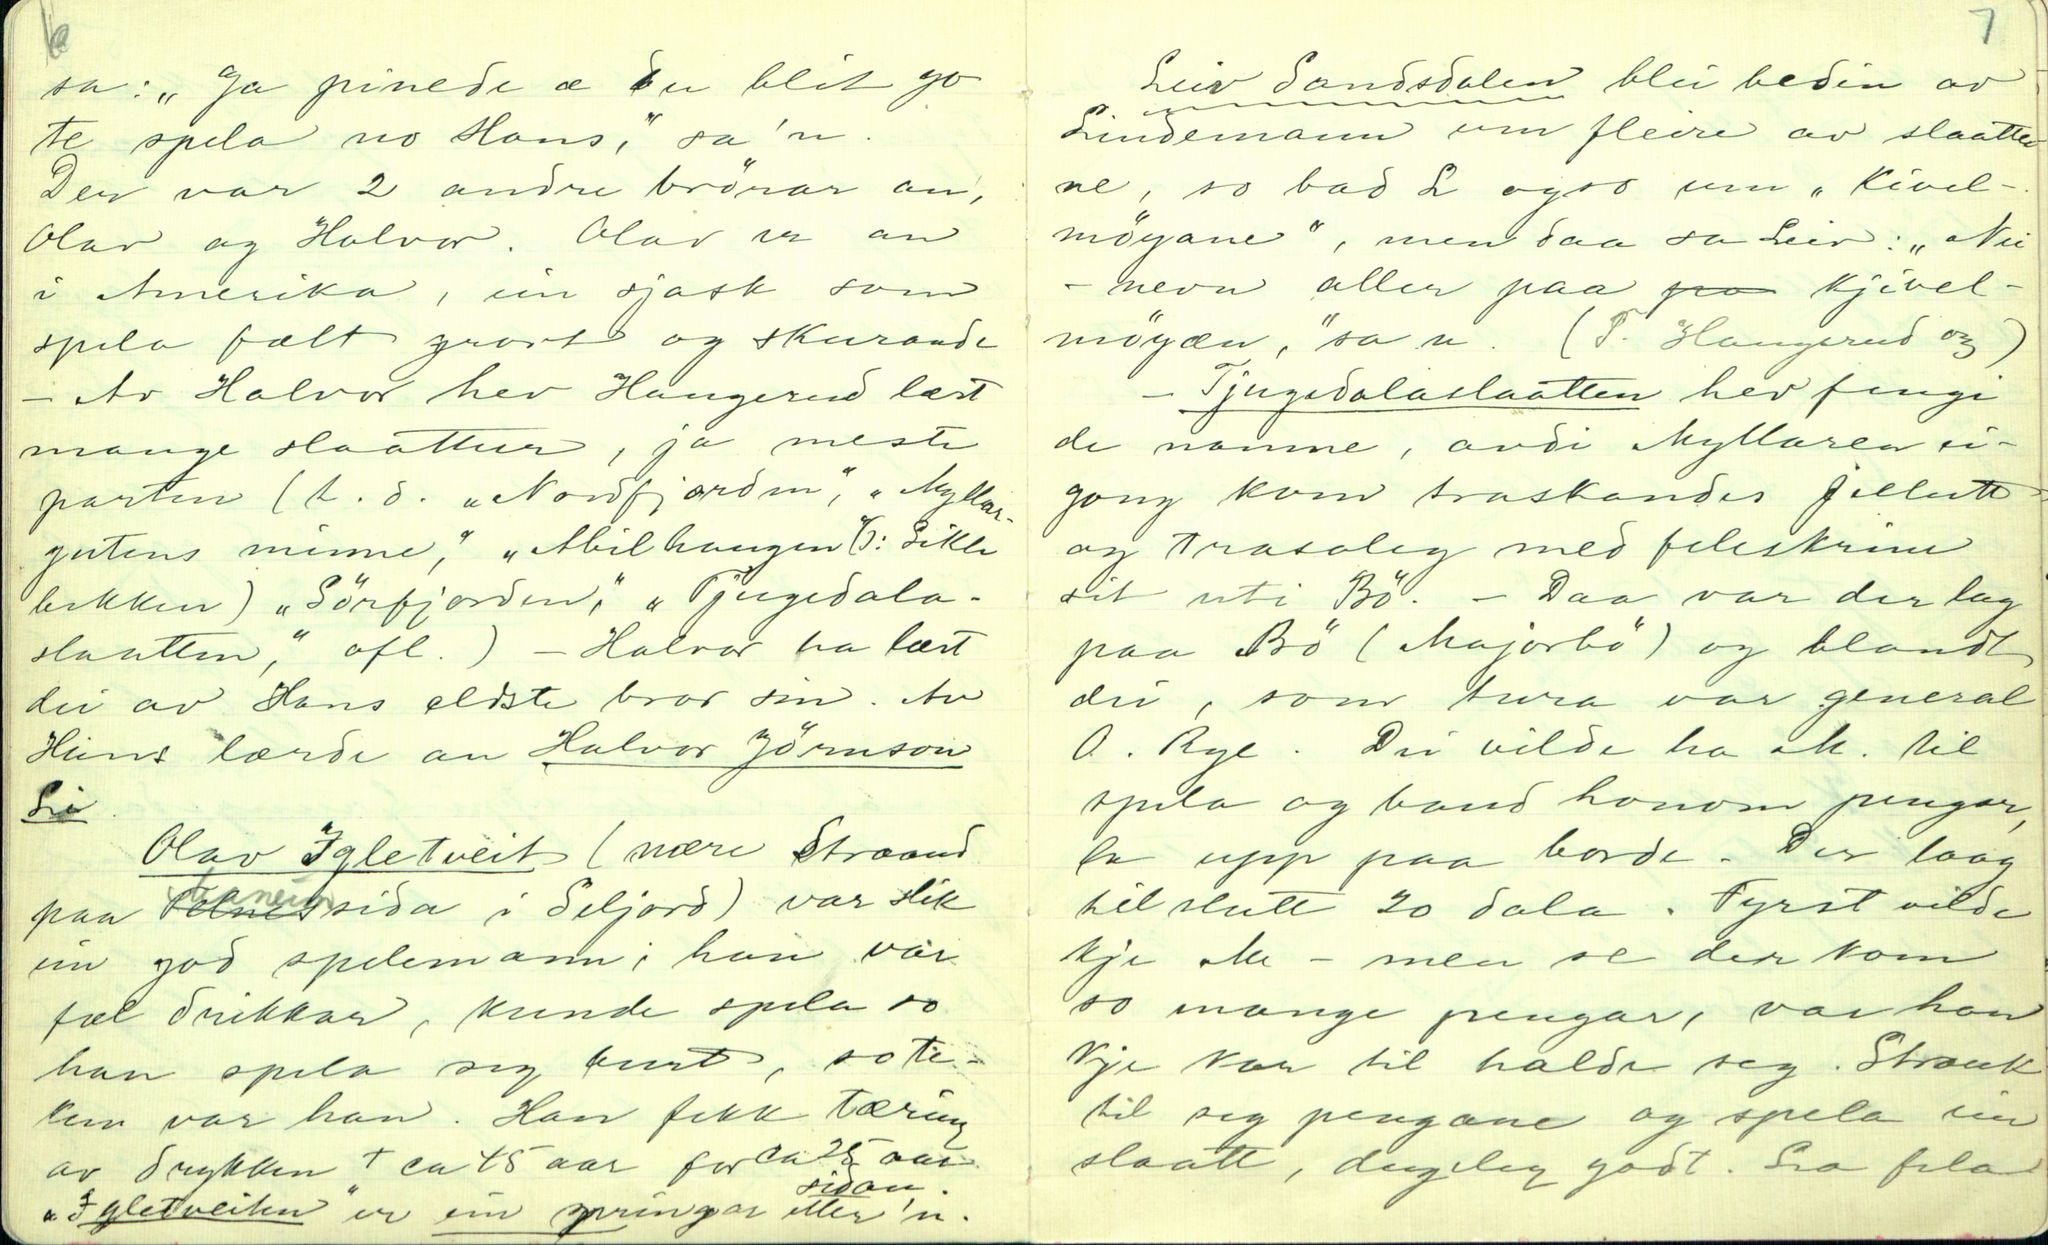 6
sa: „Ja pinede æ du blit go
te spela no Hans," sa 'n.
Der var 2 andre brörar an,
Olav og Halvor. Olav er an
i Amerika, ein sjask som
spela fælt grovt og skurande
– Av Halvor hev Haugerud lært
mange slaattur, ja meste
parten (t. d. „Nordfjorden", „Myllar-
gutens minne," „Abilhaugen" (ɔ: Sikle
bekken) „Sörfjorden," „Tjugedala-
slaatten," ofl.) – Halvor ha lært
dei av Hans eldste bror sin. Av
Heins lærde an Halvor Jörnson
Li.
Olav Igletveit (nære Straand
paa sida i Seljord) var slik
ein god spelemann; han var
fæl drikkar, kunde spela so
han spela seg burt, so te-
ken var han. Han fekk tæring
av drykken † ca 45 aar for ca 25 aar
sidan.
„Igletveiten" er ein springar etter 'n.
7
Leiv Sandsdalen blei bedin av
Lindemann um fleire av slaatta
ne, so bad L ogso um „Kivel-
möyane", men daa sa Leiv: „Nei
– nevn aller paa pa Kjivel-
möyæn," sa n. (T. Haugerud og)
– Tjugedalaslaatten hev fengi
de namne, avdi Myllaren ei-
gong kom traskandes fillutt
og trasaleg med feleskrine
sit uti Bö. – Daa var der lag
paa Bö (Majorbö) og blandt
dei, som tura var general
O. Rye. Dei vilde ha M. til
spela og baud honom pengar,
la upp paa borde. Der laag
til slutt 20 dala. Fyrst vilde
kje M – men se der kom
so mange pengar, var han
kje kar til halde seg. Strauk
til seg pengane og spela ein
slaatt, dugeleg godt. La fela